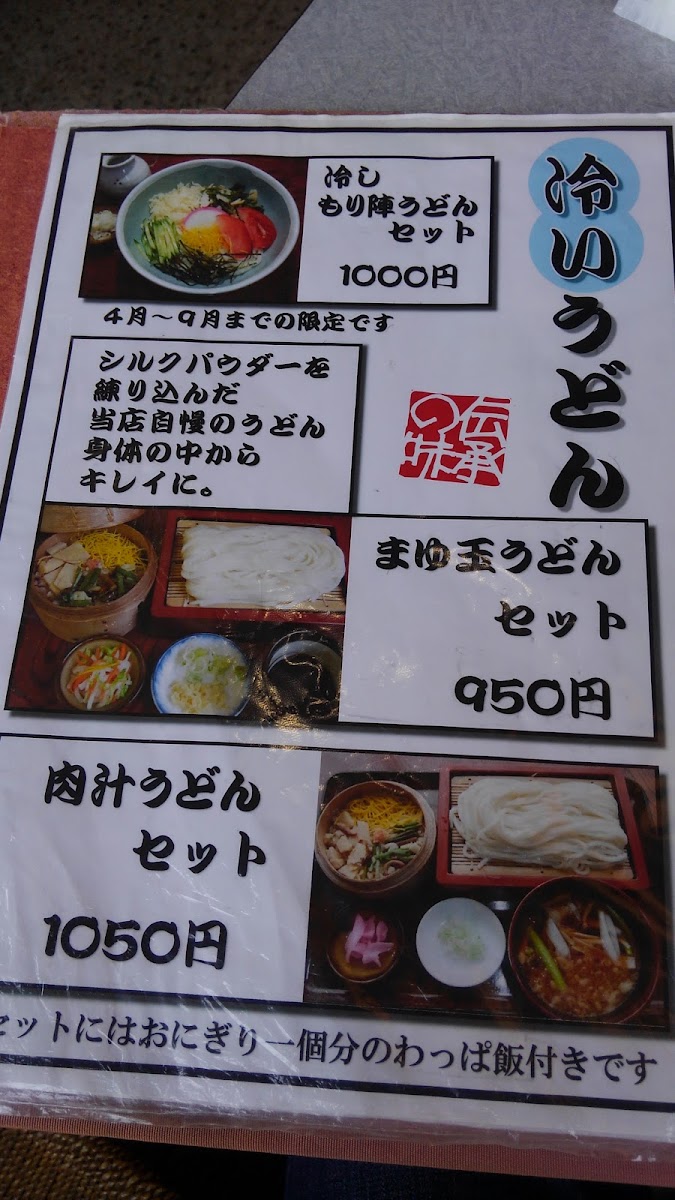 冷いうどん
冷し
もり陣うどん
セット
1000円
4月～9月までの限定です
シルクパウダーを
練り込んだ
当店自慢のうどん
身体の中から
キレイに。
伝承
の味
まゆ玉うどん
セット
950円
肉汁うどん
セット
1050円
セットにはおにぎり一個分のわっぱ飯付きです